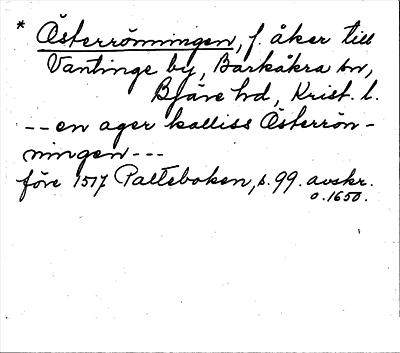 * Österrönningen, f. åker till
Vantinge by, Barkåkra sn,
Bjäre hd, Krist. l.
-- en ager kalliss Österrön-
ningen ---
före 1517 Palteboken, s. 99. avskr.
o. 1650.